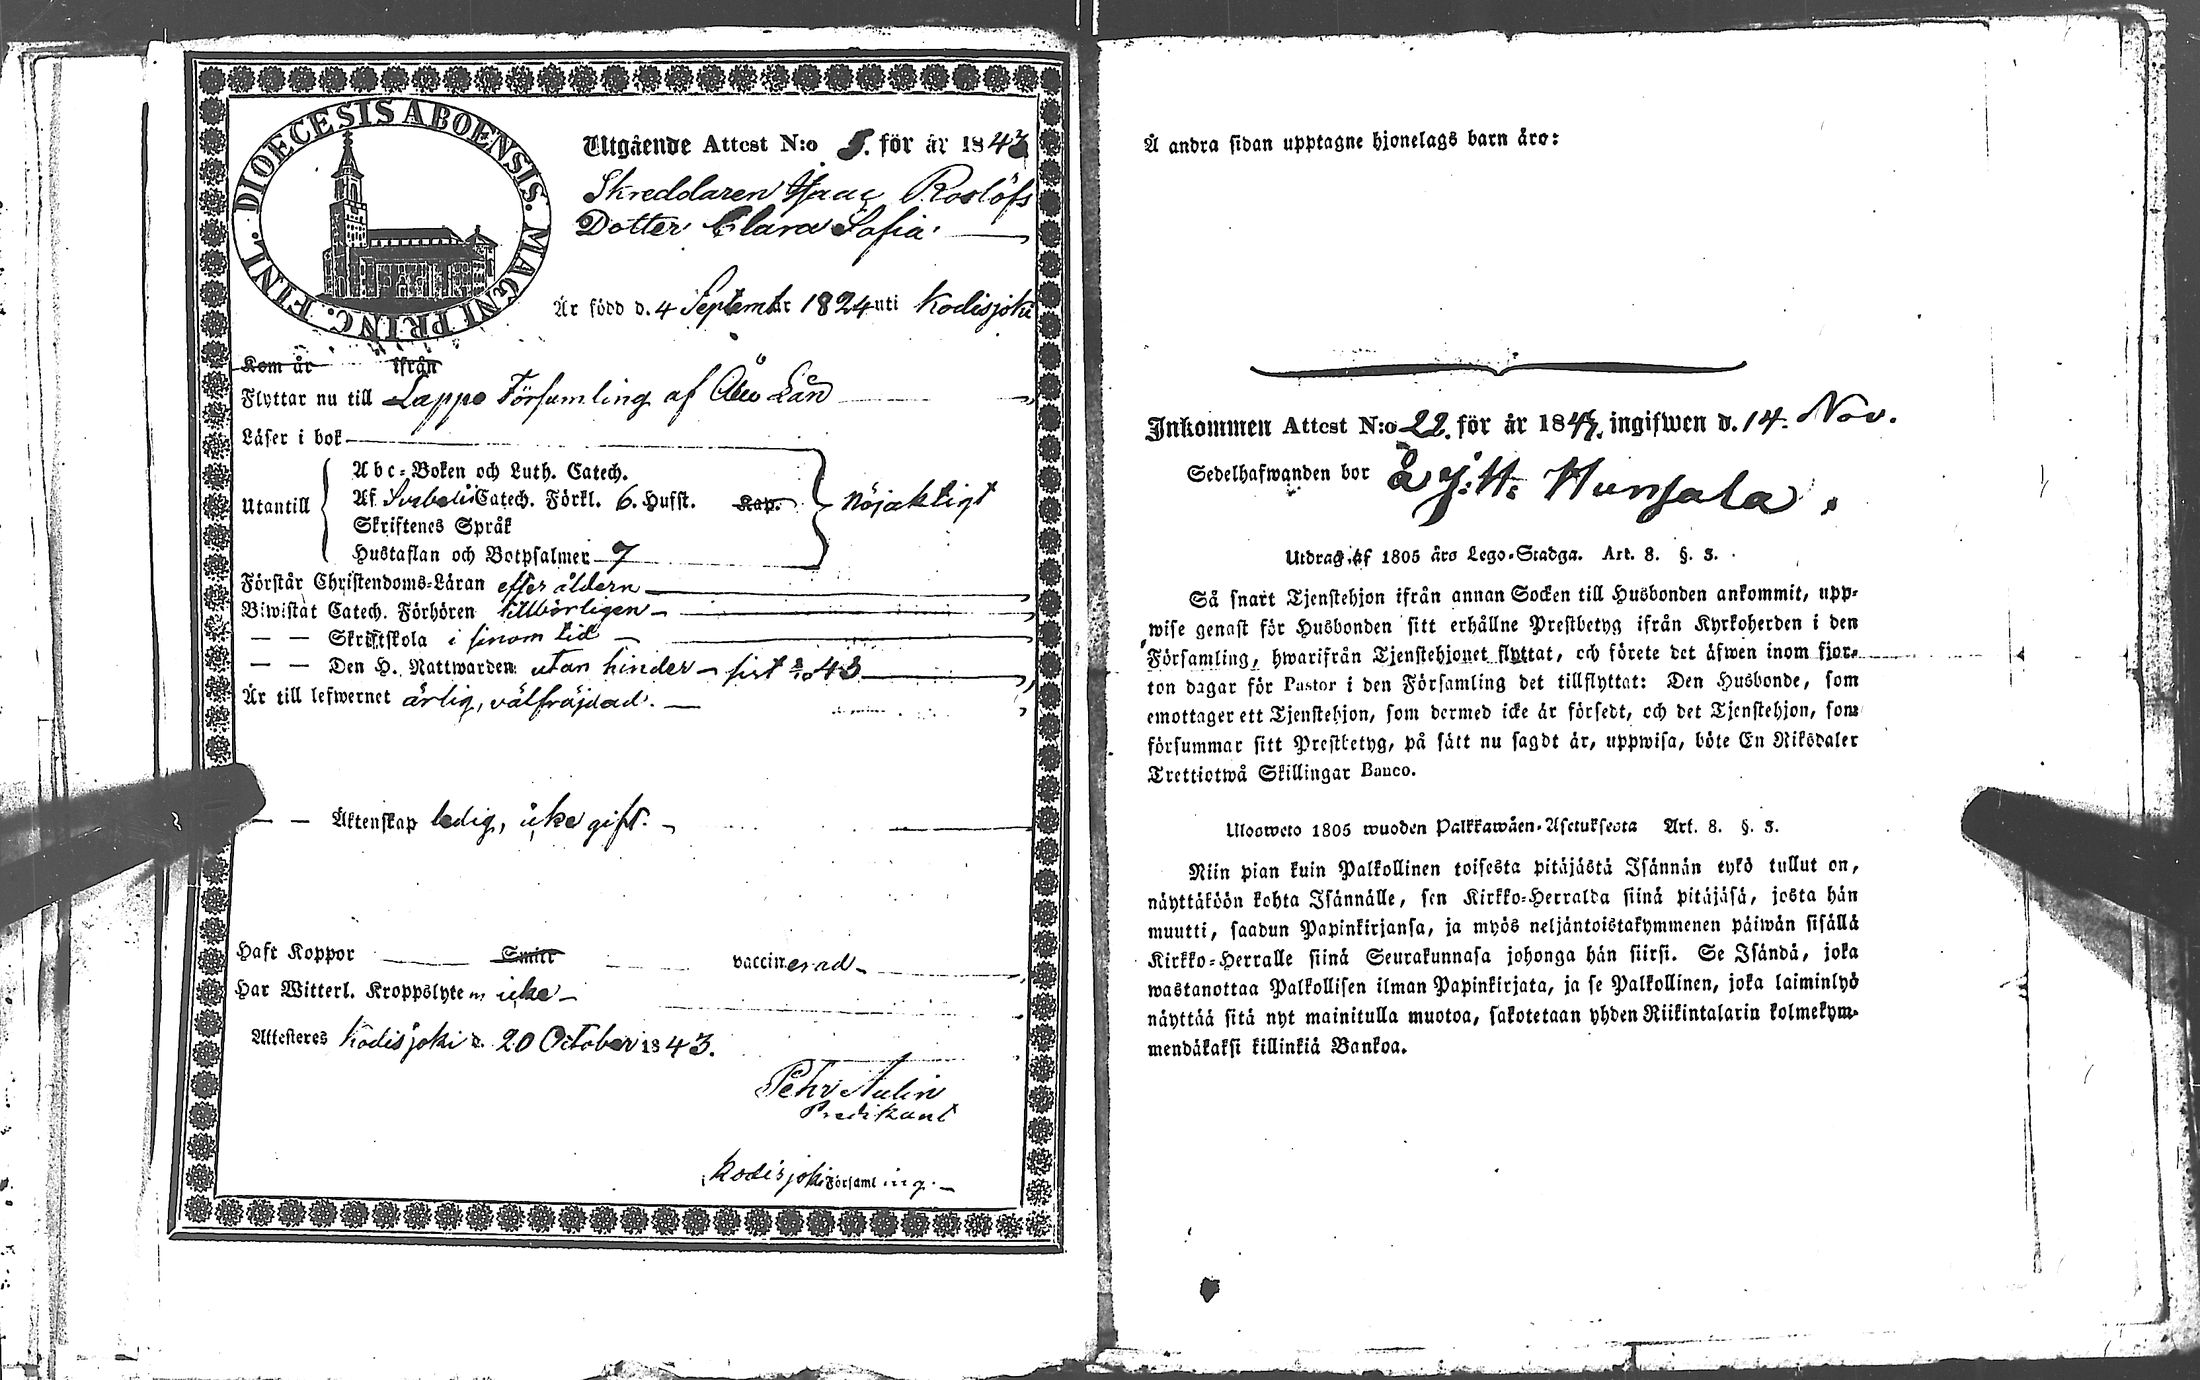 DIOECESIS ABOENSIS. MAGNI PRINC. FINL.
Utgående Attest N:o 5. för år 1843
Skreddaren Isaac Roslöfs
Dotter Clara Sofia.
Är född d. 4 Septembr 1824 uti Kodisjoki
Kom år ifrån
Flyttar nu till Lappo Församling af Åbo Län
Läser i bok
Utantill
Abc-Boken och Luth. Catech.
Af Svebelii Catech. Förkl. 6. Hufst. Kap.
Skriftenes Språk
Hustaflan och Botpsalmer 7
nöjaktigt
Förstår Christendoms-Läran efter åldern
Biwistat Catech. Förhören tillbörligen
— — Skriftskola i sinom tid
— — Den H. Nattwarden utan hinder – sist 43
Är till lefwernet ärlig, välfräjdad.
— — Äktenskap ledig, icke gift.
Haft Koppor Smitt vaccinerad
Har Witterl. Kroppslyten icke
Attesteres Kodisjoki d. 20 October 1843.
Pehr Aulin
Predikant
i Kodisjoki Församling.
Å andra sidan upptagne hjonelags barn äro:
Inkommen Attest N:o 22. för år 1843. ingifwen d. 14. Nov.
Sedelhafwanden bor å Hunsala.
Utdrag af 1805 års Lego-Stadga. Art. 8. §. 3.
Så snart Tjenstehjon ifrån annan Socken till Husbonden ankommit, upp-
wise genast för Husbonden sitt erhållne Prestbetyg ifrån Kyrkoherden i den
Församling, hwarifrån Tjenstehjonet flyttat, och förete det äfwen inom fjor-
ton dagar för Pastor i den Församling det tillflyttat: Den Husbonde, som
emottager ett Tjenstehjon, som dermed icke är försedt, och det Tjenstehjon, som
försummar sitt Prestbetyg, på sätt nu sagdt är, uppwisa, böte En Riksdaler
Trettiotwå Skillingar Banco.
Ulosweto 1805 wuoden Palkkawäen-Asetuksesta Art. 8. §. 3.
Niin pian kuin Palkollinen toisesta pitäjästä Isännän tykö tullut on,
näyttäköön kohta Isännälle, sen Kirkko-Herralda siinä pitäjäsä, josta hän
muutti, saadun Papinkirjansa, ja myös neljäntoistakymmenen päiwän sisällä
Kirkko-Herralle siinä Seurakunnasa johonga hän siirsi. Se Isändä, joka
wastanottaa Palkollisen ilman Papinkirjata, ja se Palkollinen, joka laiminlyö
näyttää sitä nyt mainitulla muotoa, sakotetaan yhden Riikintalarin kolmekym-
mendäkaksi killinkiä Bankoa.